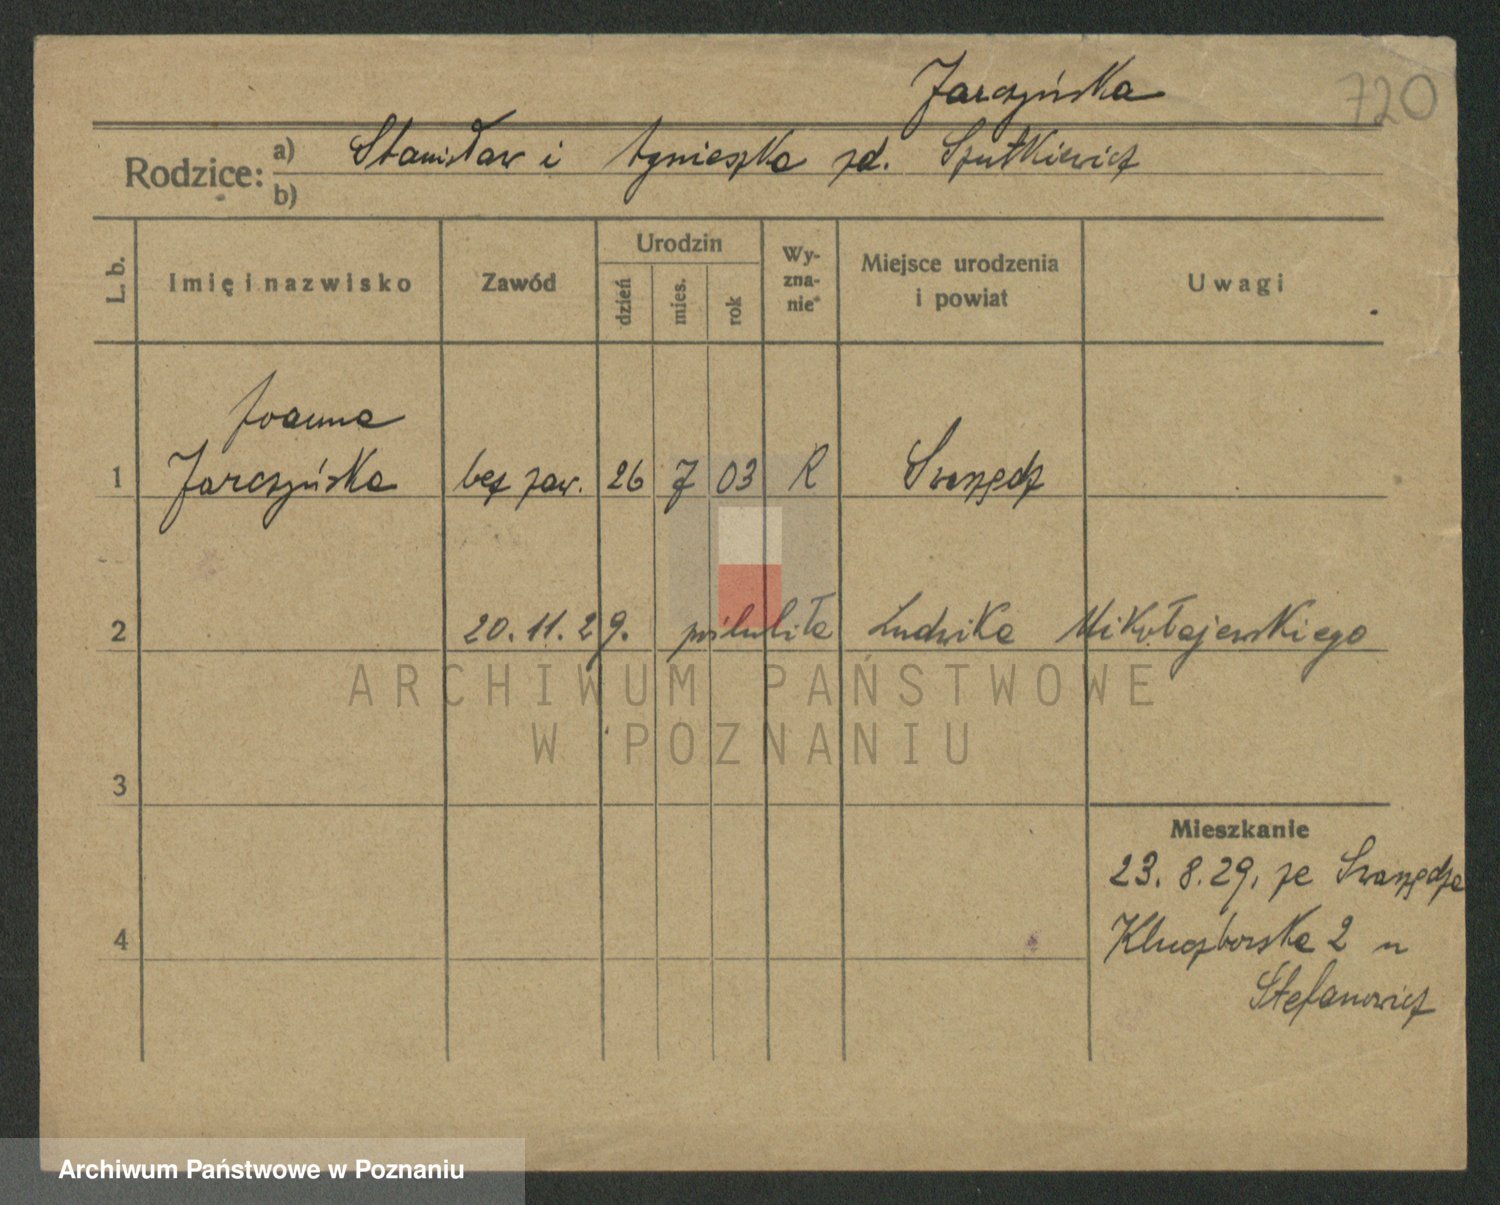 Jarczyńska
720
Rodzice:
a) Stanisław i Agnieszka zd. Szułkiewicz
b)
L. b.
Imię i nazwisko
Zawód
Urodzin
dzień
mies.
rok
Wy-
zna-
nie*
Miejsce urodzenia
i powiat
Uwagi
Joanna
1 Jarczyńska bez zaw. 26 7 03 R Swarzędz
2 20.11.29. poślubiła Ludwika Mikołajewskiego
ARCHIWUM PAŃSTWOWE
W POZNANIU
3
Mieszkanie
23.8.29. ze Swarzędza
4 Kluczborska 2 u
Stefanowicz
Archiwum Państwowe w Poznaniu